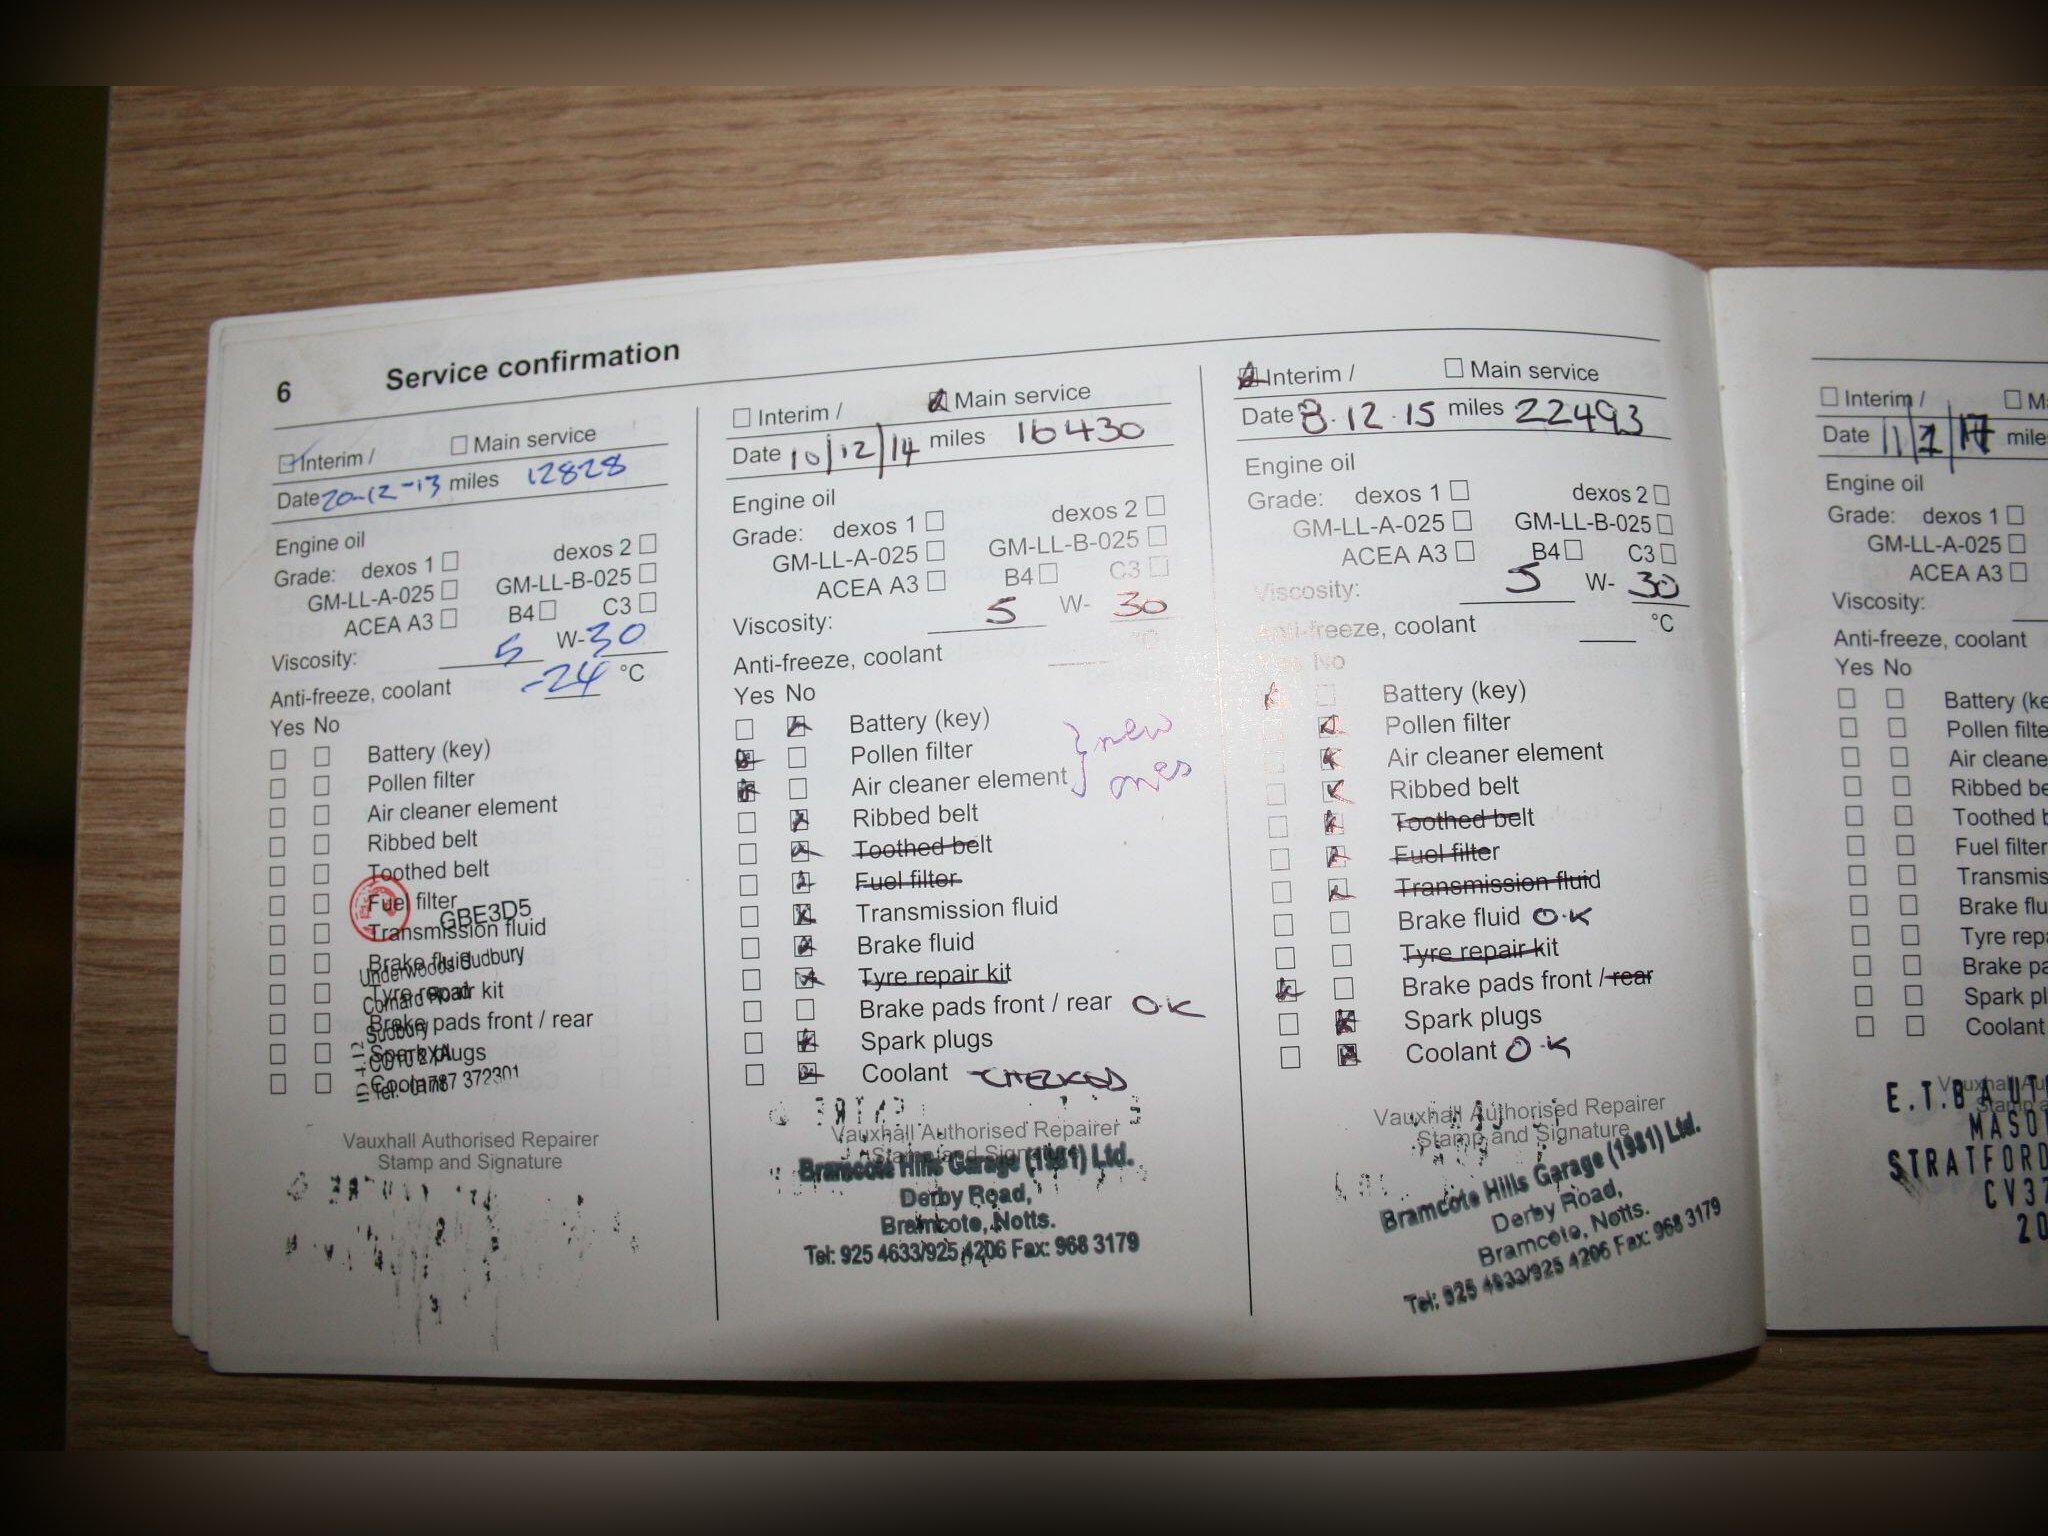 6 Service confirmation
Interim / Main service
Date 20-12-13 miles 12828
Engine oil
Grade: dexos 1 dexos 2
GM-LL-A-025 GM-LL-B-025
ACEA A3 B4 C3
Viscosity: 5 W-30
Anti-freeze, coolant -24 °C
Yes No
Battery (key)
Pollen filter
Air cleaner element
Ribbed belt
Toothed belt
Fuel filter
GBE3D5
Transmission fluid
Brake fluid
Underwoods Sudbury
Tyre repair kit
Cornard Road
Brake pads front / rear
Sudbury
Spark plugs
CO10 2XA
Coolant
Tel: 01787 372301
Vauxhall Authorised Repairer
Stamp and Signature
Interim / Main service
Date 10/12/14 miles 16430
Engine oil
Grade: dexos 1 dexos 2
GM-LL-A-025 GM-LL-B-025
ACEA A3 B4 C3
Viscosity: 5 W- 30
Anti-freeze, coolant °C
Yes No
Battery (key)
Pollen filter } new
Air cleaner element } ones
Ribbed belt
Toothed belt
Fuel filter
Transmission fluid
Brake fluid
Tyre repair kit
Brake pads front / rear O-K
Spark plugs
Coolant CHECKED
Vauxhall Authorised Repairer
Stamp and Signature
Bramcote Hills Garage (1981) Ltd.
Derby Road,
Bramcote, Notts.
Tel: 925 4633/925 4206 Fax: 968 3179
Interim / Main service
Date 8.12.15 miles 22493
Engine oil
Grade: dexos 1 dexos 2
GM-LL-A-025 GM-LL-B-025
ACEA A3 B4 C3
Viscosity: 5 W- 30
Anti-freeze, coolant °C
Yes No
Battery (key)
Pollen filter
Air cleaner element
Ribbed belt
Toothed belt
Fuel filter
Transmission fluid
Brake fluid O-K
Tyre repair kit
Brake pads front / rear
Spark plugs
Coolant O-K
Vauxhall Authorised Repairer
Stamp and Signature
Bramcote Hills Garage (1981) Ltd.
Derby Road,
Bramcote, Notts.
Tel: 925 4633/925 4206 Fax: 968 3179
Interim /
Date
Engine oil
Grade: dexos 1
GM-LL-A-025
ACEA A3
Viscosity:
Anti-freeze, coolant
Yes No
Battery
Pollen filter
Air
Ribbed
Toothed
Fuel filter
Brake
Tyre
Brake
Spark
Coolant
Vauxhall
E.T.B
STRATFORD